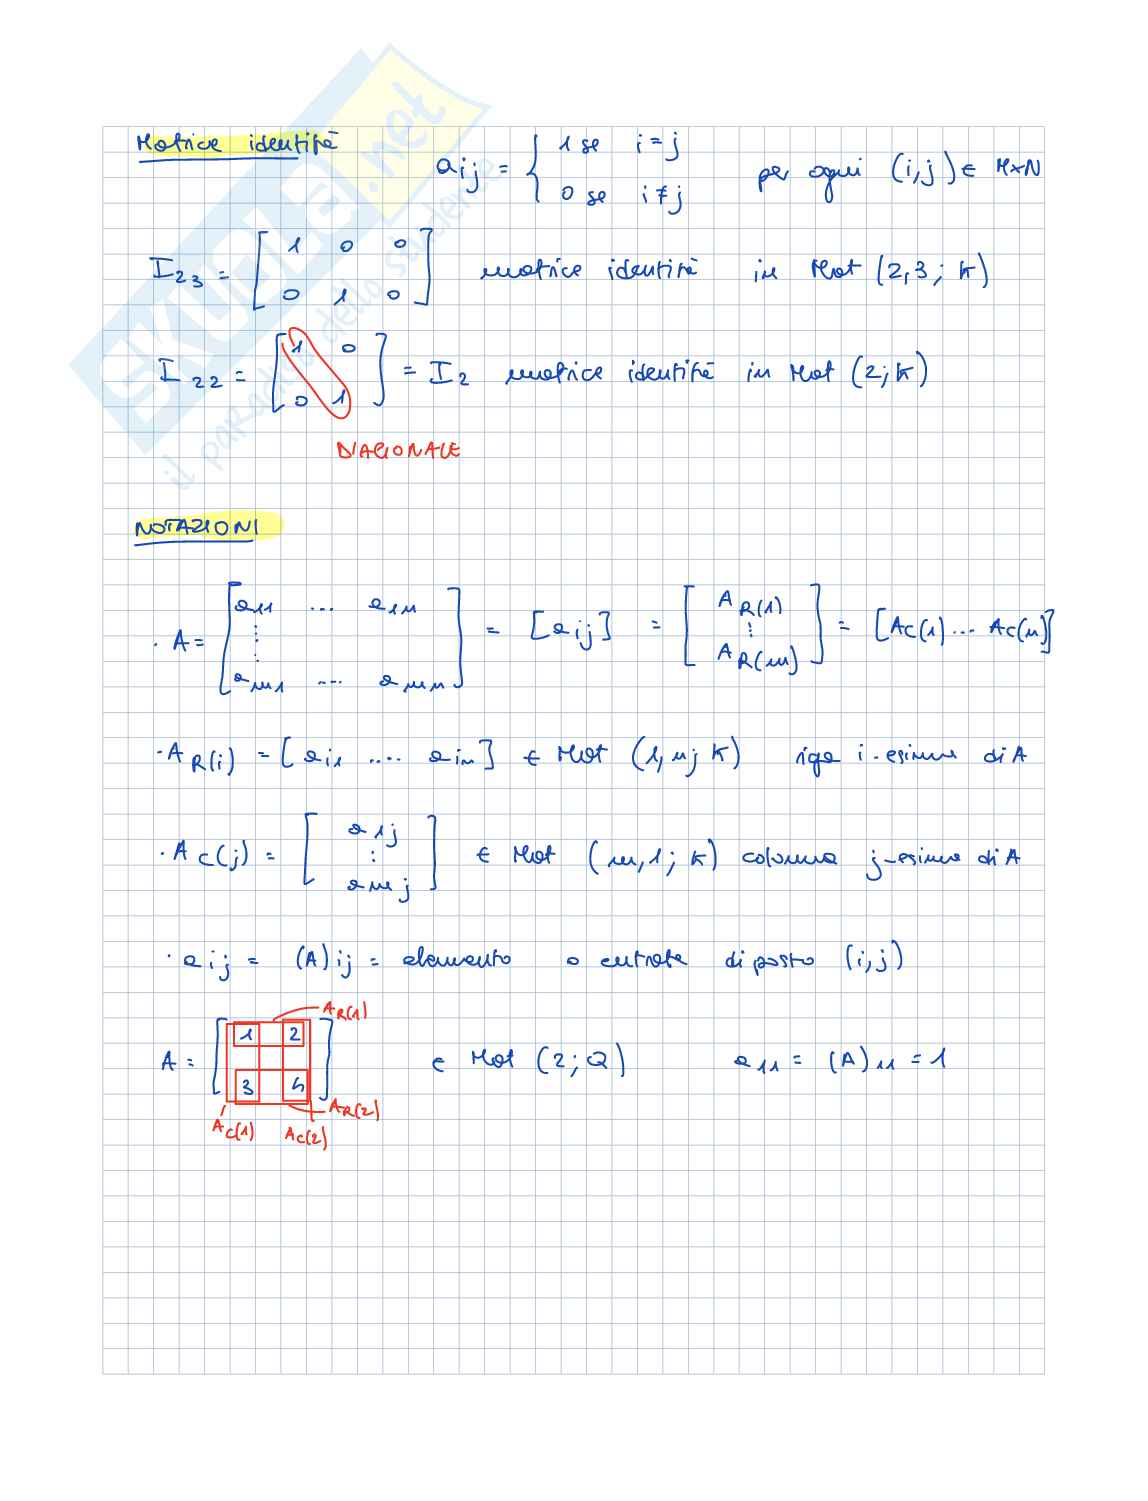 Matrice identità
aij = { 1 se i = j
0 se i ≠ j
per ogni (i,j) ∈ M×N
I23 = [ 1 0 0
0 1 0 ] matrice identità in Mat (2,3; K)
I22 = [ 1 0
0 1 ] = I2 matrice identità in Mat (2; K)
DIAGONALE
NOTAZIONI
· A = [ a11 ... a1n
⋮
am1 ... amn ] = [aij] = [ AR(1)
⋮
AR(m) ] = [AC(1) ... AC(n)]
· AR(i) = [ ai1 .... ain ] ∈ Mat (1,n; K) riga i-esima di A
· AC(j) = [ a1j
⋮
amj ] ∈ Mat (m,1; K) colonna j-esima di A
· aij = (A)ij = elemento o entrata di posto (i,j)
AR(1)
A = [ 1 2
3 4 ] ∈ Mat (2; Q) a11 = (A)11 = 1
AR(2)
AC(1) AC(2)
SKUOLA.net
il paradiso dello studente